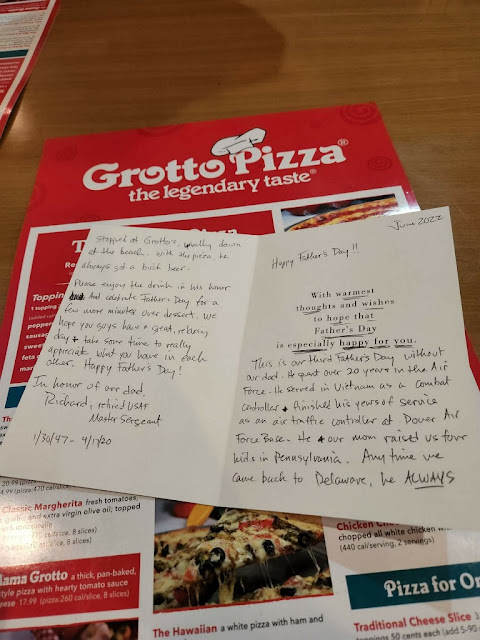 Grotto Pizza®
the legendary taste®
June 2022
Stopped at Grotto's, usually down
at the beach. With the pizza he
always got a birch beer.
Please enjoy the drinks in his honor
And celebrate Father's Day for a
few more minutes over dessert. We
hope you guys have a great, relaxing
day + take some time to really
appreciate what you have in each
other. Happy Father's Day!
In honor of our dad,
Richard, retired USAF
Master Sergeant
1/30/47 - 4/17/20
Happy Father's Day!!
With warmest
thoughts and wishes
to hope that
Father's Day
is especially happy for you.
This is our third Father's Day without
our dad. He spent over 20 years in the Air
Force. He served in Vietnam as a combat
controller + finished his years of service
as an air traffic controller at Dover Air
Force Base. He + our mom raised us four
kids in Pennsylvania. Any time we
came back to Delaware, he ALWAYS
Topping
1 topping
Classic Margherita fresh tomatoes,
garlic and extra virgin olive oil; topped
8 slices)
cal/slice, 8 slices)
Mama Grotto a thick, pan-baked,
style pizza with hearty tomato sauce
cheese 17.99 (pizza:260 cal/slice, 8 slices)
The Hawaiian a white pizza with ham and
Chicken
chopped all white chicken
(440 cal/serving, 2 servings)
Pizza for On
Traditional Cheese Slice 3.
toppings 50 cents each (add 5-90